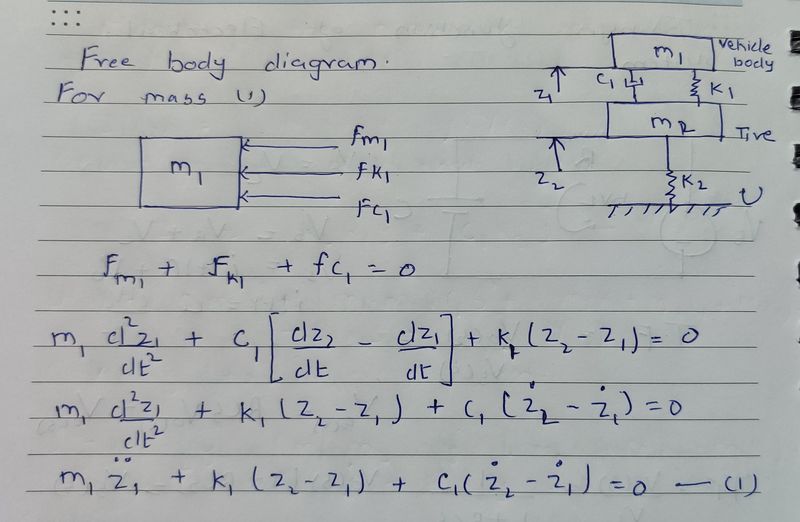 Free body diagram.
For mass (1)
m₁
Fm₁
FK₁
Fc₁
m₁
Vehicle body
c₁
K₁
z₁
m₂
Tire
z₂
K₂
U
Fm₁ + Fk₁ + fc₁ = 0
m₁ d²z₁/dt² + c₁ [dz₂/dt - dz₁/dt] + k₁ (z₂ - z₁) = 0
m₁ d²z₁/dt² + k₁ (z₂ - z₁) + c₁ (ż₂ - ż₁) = 0
m₁ z̈₁ + k₁ (z₂ - z₁) + c₁(ż₂ - ż₁) = 0 — (1)